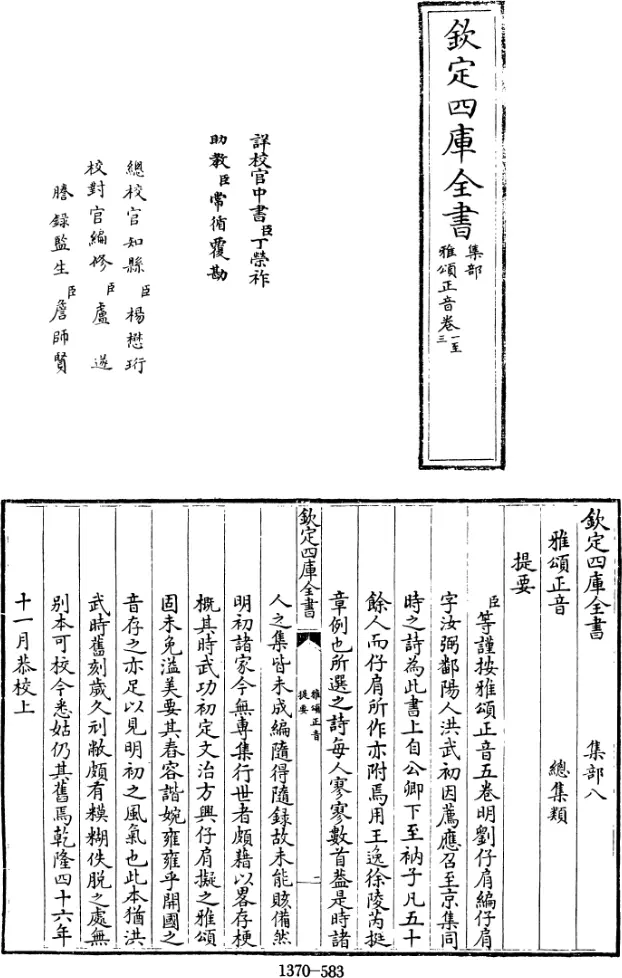 欽定四庫全書
集部
雅頌正音卷一至三
詳校官中書臣丁榮祚
助教臣常循覆勘
總校官知縣臣楊懋珩
校對官編修臣盧遂
謄錄監生臣詹師賢
欽定四庫全書
集部八
雅頌正音
總集類
提要
臣等謹按雅頌正音五卷明劉仔肩編仔肩
字汝弼鄱陽人洪武初因薦應召至京集同
時之詩為此書上自公卿下至衲子凡五十
餘人而仔肩所作亦附焉用王逸徐陵芮挺
章例也所選之詩每人寥寥數首葢是時諸
欽定四庫全書
雅頌正音
提要
二
人之集皆未成編隨得隨録故未能賅備然
明初諸家今無專集行世者頗藉以畧存梗
概其時武功初定文治方興仔肩擬之雅頌
固未免溢美要其舂容諧婉雍雍乎開國之
音存之亦足以見明初之風氣也此本猶洪
武時舊刻歲久刓敝頗有模糊佚脱之處無
别本可校今悉姑仍其舊焉乾隆四十六年
十一月恭校上
1370-583